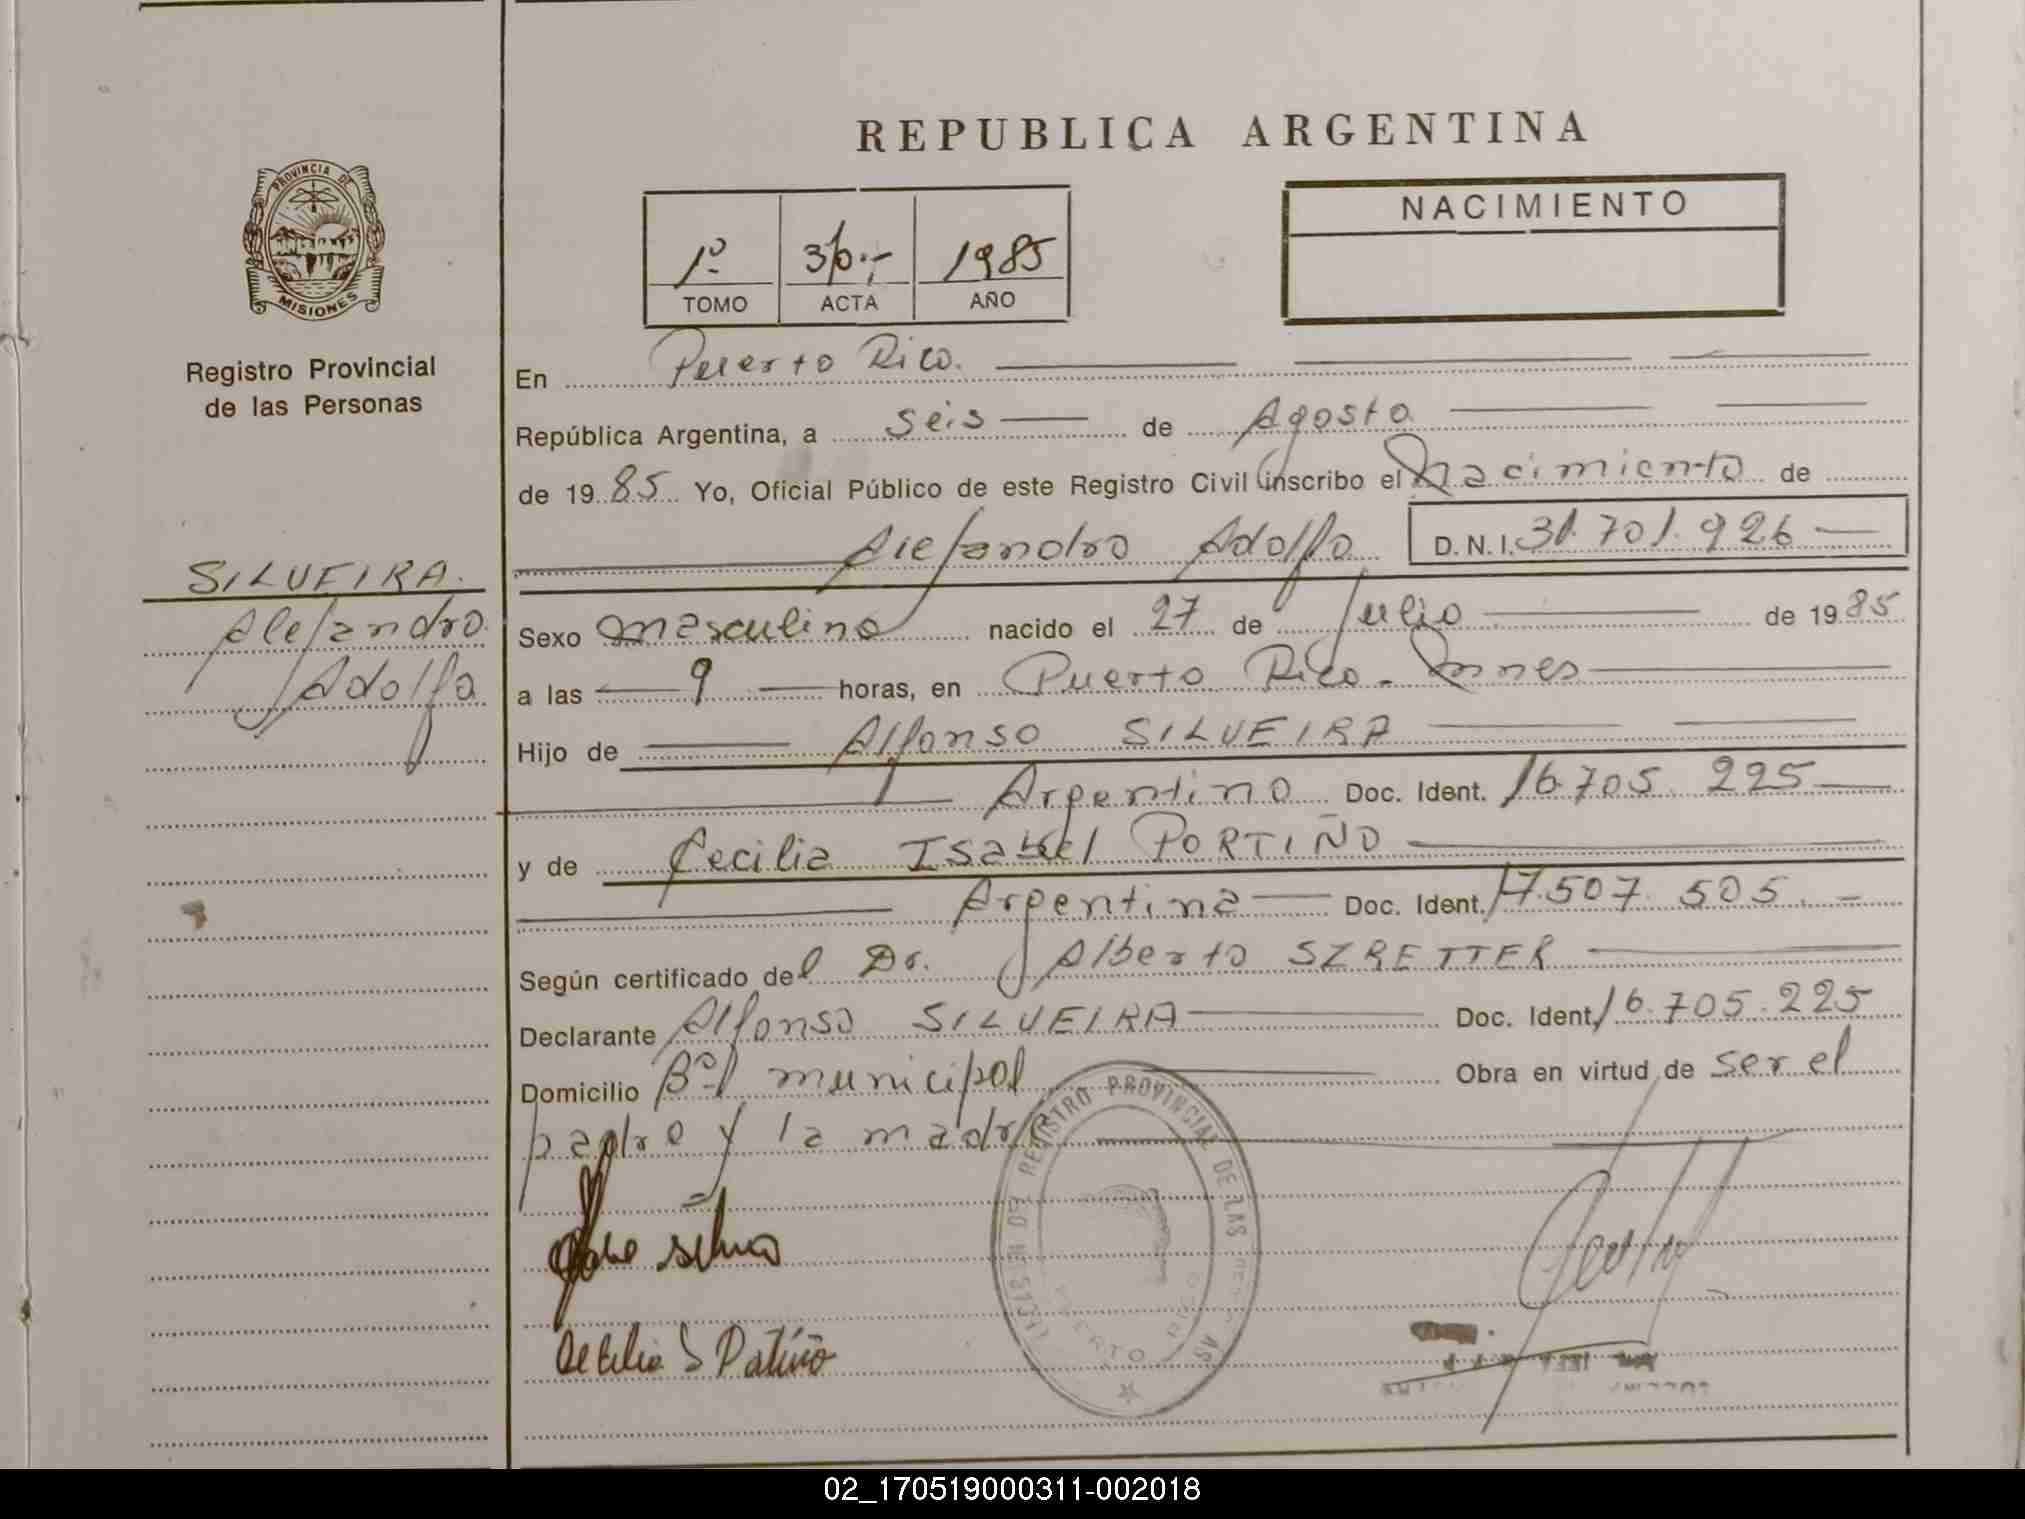 REPUBLICA ARGENTINA
PROVINCIA DE
MISIONES
Registro Provincial
de las Personas
NACIMIENTO
1º 310.- 1985
TOMO ACTA AÑO
En Puerto Rico.
República Argentina, a seis de Agosto
de 1985 Yo, Oficial Público de este Registro Civil inscribo el Nacimiento de
Alejandro Adolfo D.N.I. 31.701.926
SILVEIRA.
Alejandro
Adolfo
Sexo masculino nacido el 27 de Julio de 1985
a las 9 horas, en Puerto Rico - Mnes
Hijo de Alfonso SILVEIRA
Argentino Doc. Ident. 16.705.225
y de Cecilia Isabel PORTIÑO
Argentina Doc. Ident. 17.507.505.-
Según certificado del Dr. Alberto SZRETTER
Declarante Alfonso SILVEIRA Doc. Ident. 16.705.225
Domicilio Bº municipal Obra en virtud de ser el
padre y la madre
REGISTRO PROVINCIAL DE LAS
PUERTO RICO
02_170519000311-002018